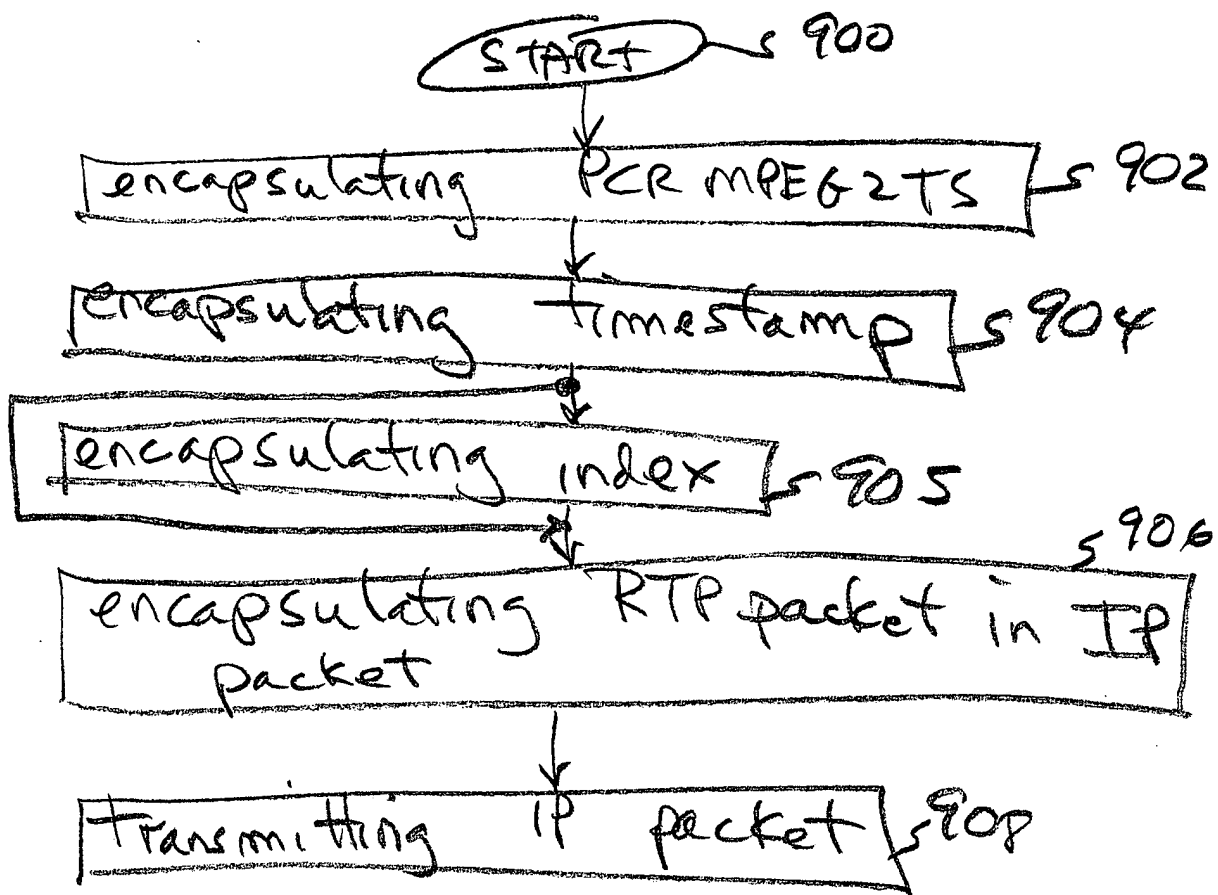 START 900
encapsulating PCR MPEG2TS 902
encapsulating timestamp 904
encapsulating index 905
906
encapsulating RTP packet in IP
packet
transmitting IP packet 908